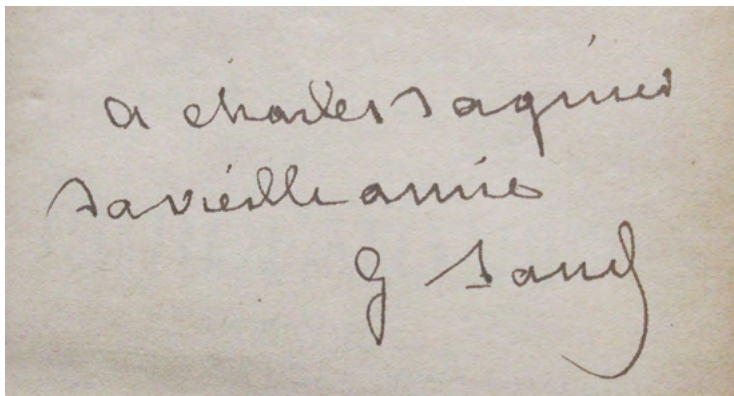 a charles sagnier
sa vieille amie
G Sand